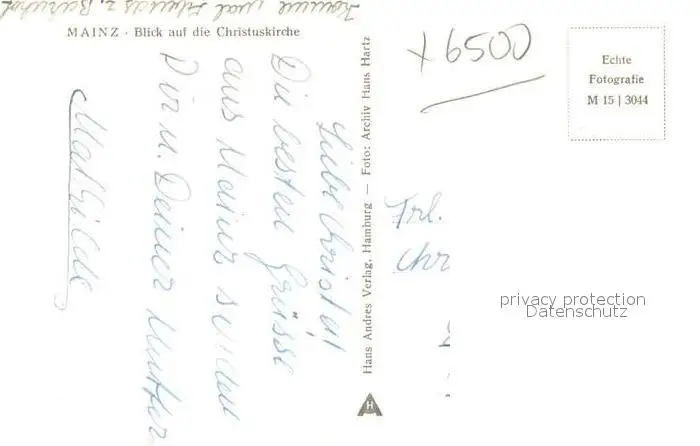 MAINZ · Blick auf die Christuskirche
Liebe Christel!
Die besten Grüsse
aus Mainz senden
Dir u. Deiner Mutter
Mathilde
Hans Andres Verlag, Hamburg — Foto: Archiv Hans Hartz
H
+ 6500
Echte
Fotografie
M 15 | 3044
Frl.
Chr
privacy protection
Datenschutz